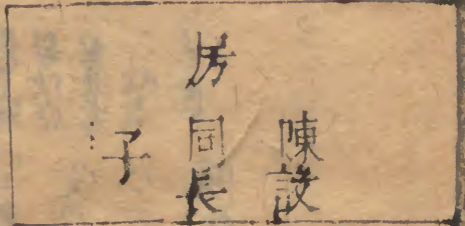 陳設
房同長
子